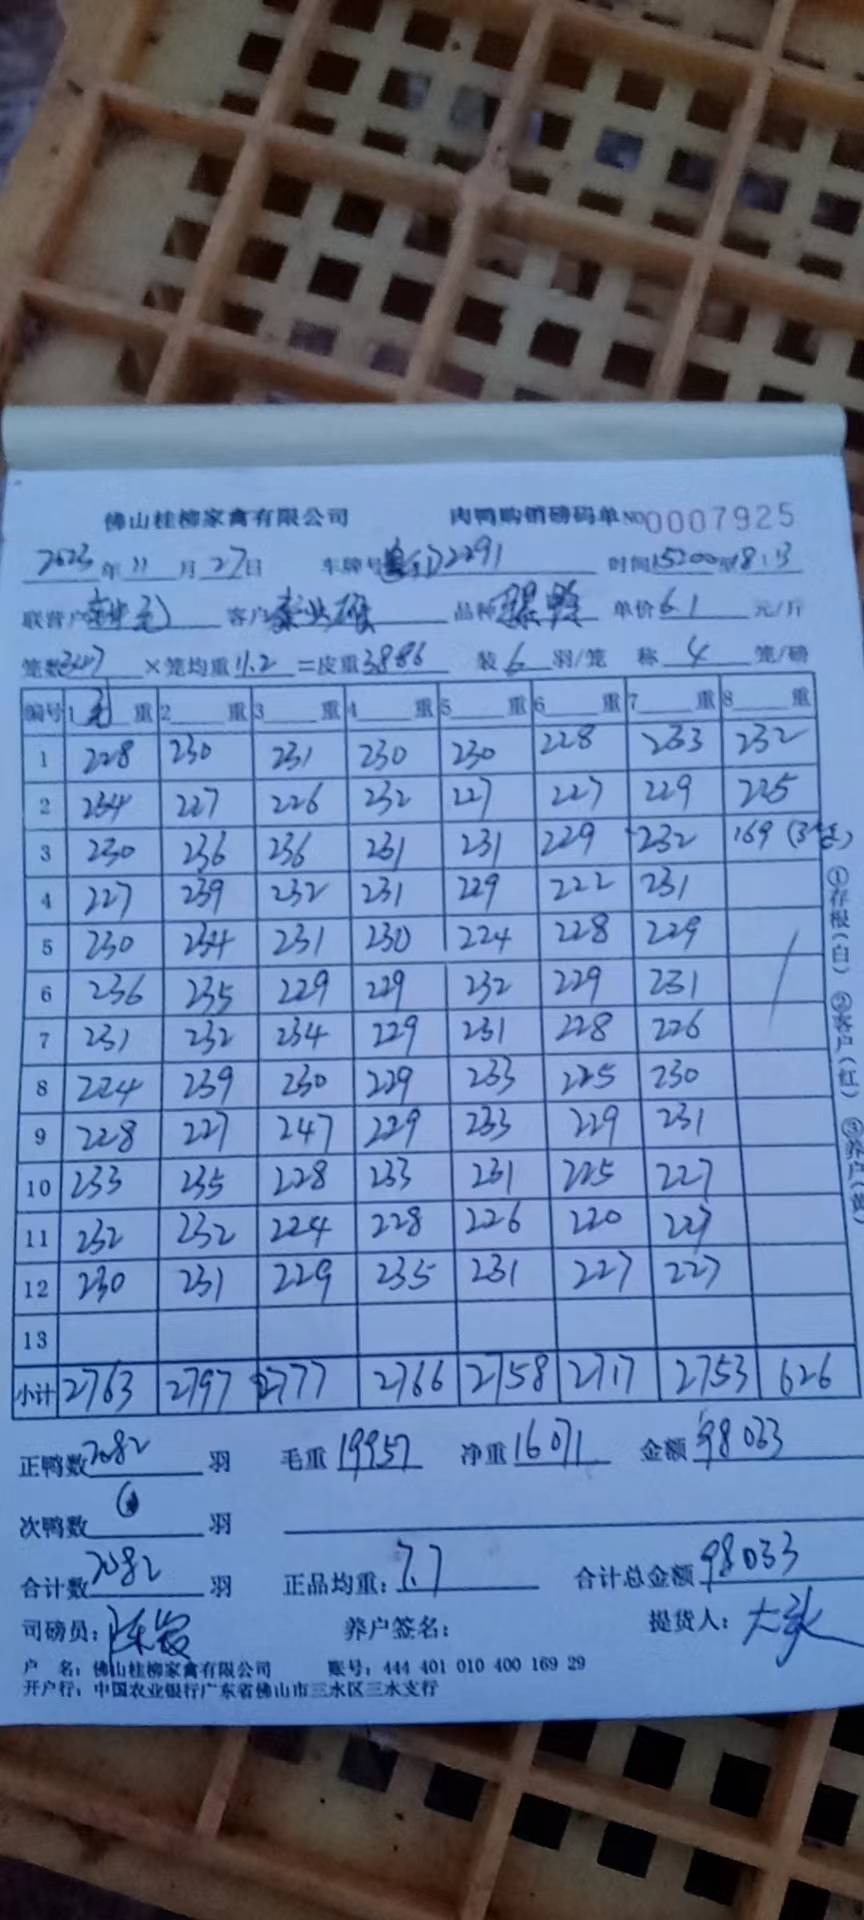 佛山桂柳家禽有限公司 肉鸭购销磅码单 NO 0007925
2023年11月27日 车牌号 2291 时间15200 8:13
联营户 客户 品种 单价6.1元/斤
笼数347×笼均重11.2=皮重3886 装6羽/笼 称4笼/磅
编号 1毛重 2重 3重 4重 5重 6重 7重 8重
1 228 230 231 230 230 228 233 232
2 234 227 226 232 227 227 229 225
3 230 236 236 231 231 229 232 169(3个笼)
4 227 239 232 231 229 222 231
5 230 234 231 230 224 228 229
6 236 235 229 229 232 229 231
7 231 232 234 229 231 228 226
8 224 239 230 229 233 225 230
9 228 227 247 229 233 229 231
10 233 235 228 233 231 225 227
11 232 232 224 228 226 220 227
12 230 231 229 235 231 227 227
13
小计 2763 2797 2777 2766 2758 2717 2753 626
①存根(白) ②客户(红) ③养户(黄)
正鸭数2082羽 毛重19957 净重16071 金额98033
次鸭数0羽
合计数2082羽 正品均重:7.7 合计总金额98033
司磅员: 养户签名: 提货人:
户 名:佛山桂柳家禽有限公司 账号:444 401 010 400 169 29
开户行:中国农业银行广东省佛山市三水区三水支行